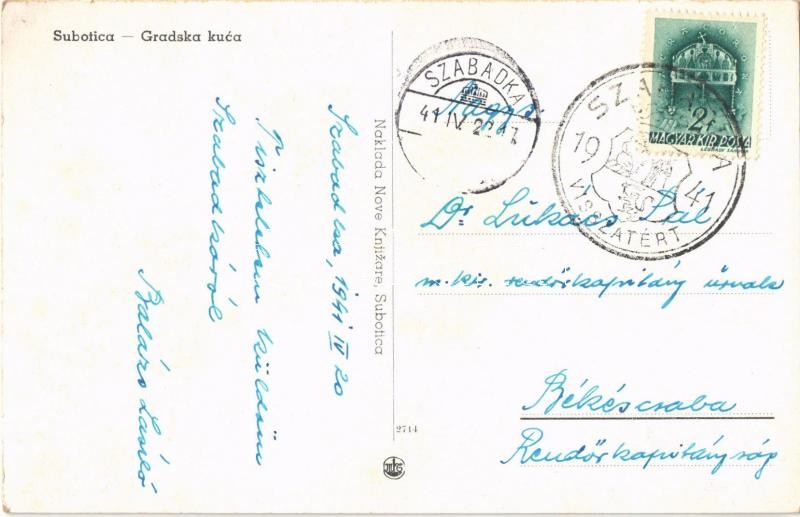 Subotica — Gradska kuća
Szabadka, 1941 IV 20
Tisztelelem küldöm
Szabadkáról
Balázs László
Naklada Nove Knjižare, Subotica
2714
SZABADKA
41 IV. 20
SZABADKA
19 41
VISSZATÉRT
2f
MAGYAR KIR. POSTA
Nagys.
Dr Lukács Pál
m. kir. rendőrkapitány úrnak
Békéscsaba
Rendőrkapitányság